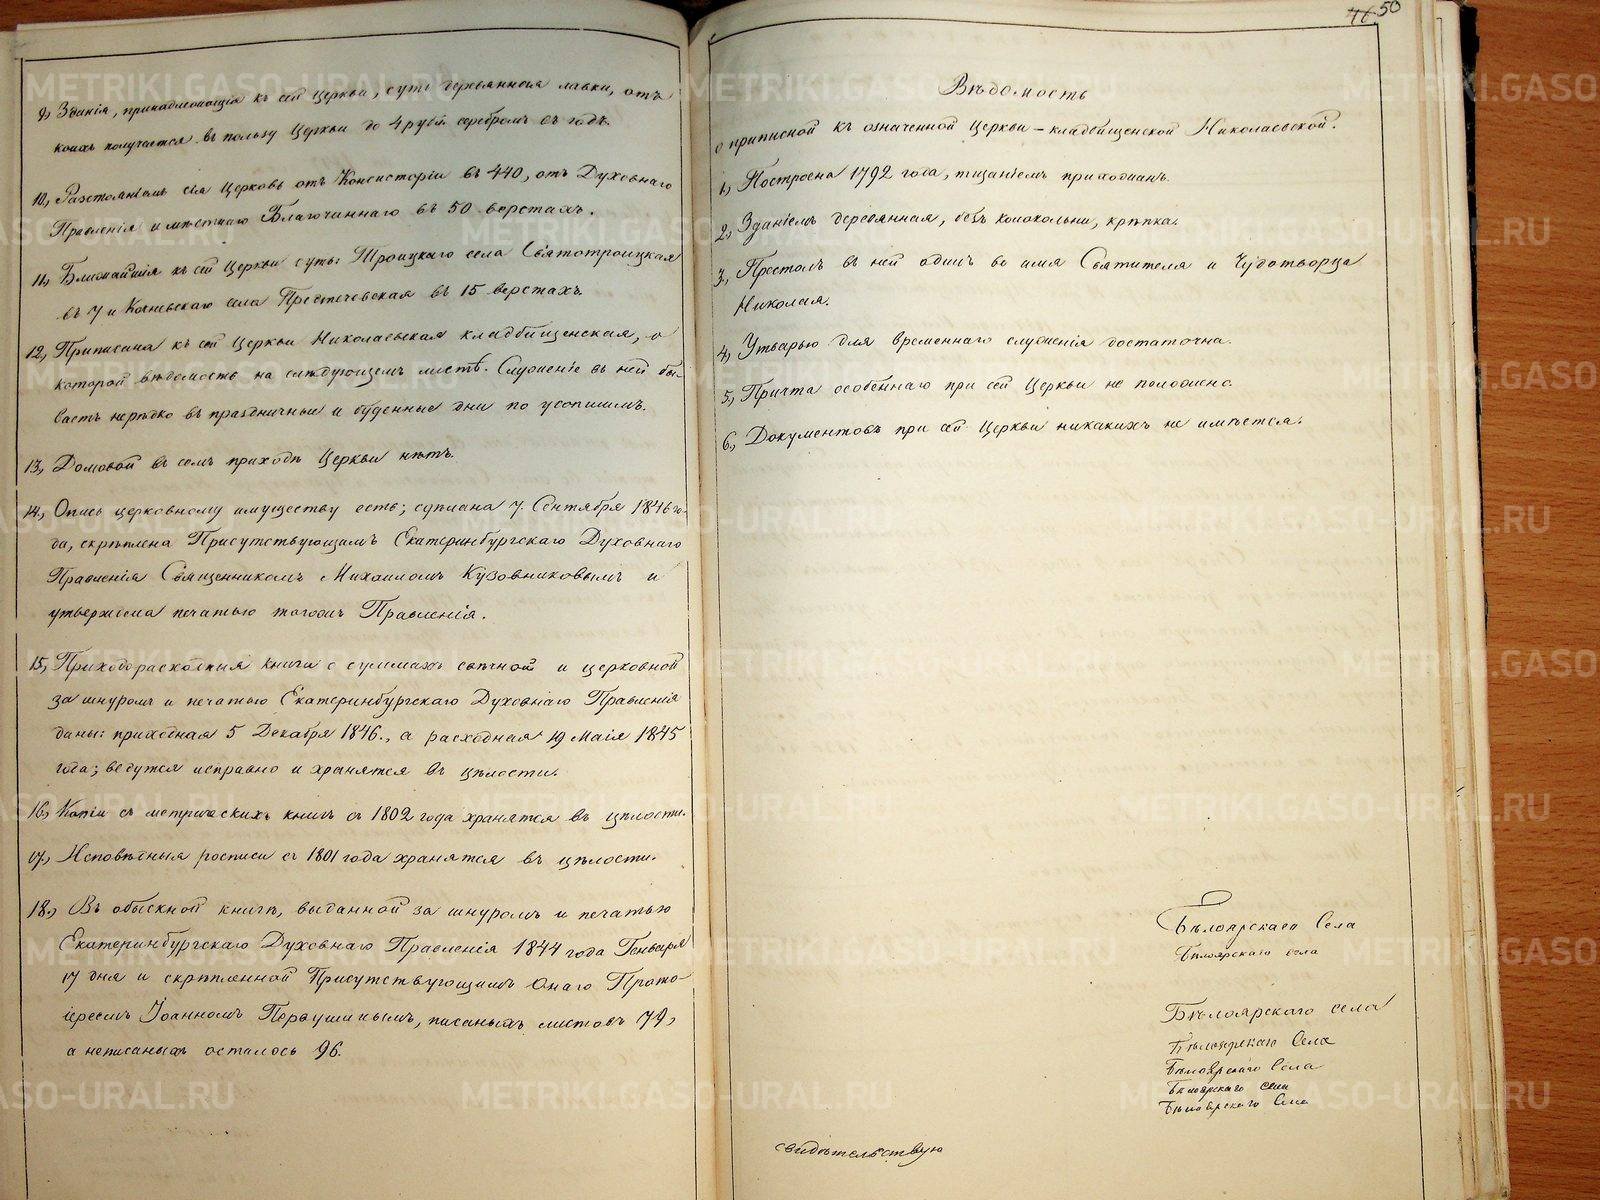 9, Зданія, принадлежащія къ сей Церкви, суть деревянныя лавки, отъ
коихъ получается въ пользу Церкви до 4 рублей серебромъ въ годъ.
10, Разстояніемъ сія Церковь отъ Консисторіи въ 440, отъ Духовнаго
Правленія и мѣстнаго Благочиннаго въ 50 верстахъ.
11, Ближайшія къ сей Церкви суть: Троицкаго села Святотроицкая
въ 7 и Кочневскаго села Предтечевская въ 15 верстахъ.
12, Приписана къ сей Церкви Николаевская кладбищенская, о
которой вѣдомость на слѣдующемъ листѣ. Служеніе въ ней бы-
ваетъ нерѣдко въ праздничные и буденные дни по усопшимъ.
13, Домовой въ семъ приходѣ Церкви нѣтъ.
14, Опись церковному имуществу есть; сдѣлана 7 Сентября 1846 го-
да, скрѣплена Присутствующимъ Екатеринбургскаго Духовнаго
Правленія Священникомъ Михаиломъ Кузовниковымъ и
утверждена печатью тогожъ Правленія.
15, Приходорасходныя книги о суммахъ свѣчной и церковной
за шнуромъ и печатью Екатеринбургскаго Духовнаго Правленія
даны: приходная 5 Декабря 1846., а расходная 19 Маія 1845
года; ведутся исправно и хранятся въ цѣлости.
16, Копіи съ метрическихъ книгъ съ 1802 года хранятся въ цѣлости.
17, Исповѣдныя росписи съ 1801 года хранятся въ цѣлости.
18, Въ обыскной книгѣ, выданной за шнуромъ и печатью
Екатеринбургскаго Духовнаго Правленія 1844 года Генваря
17 дня и скрѣпленной Присутствующимъ онаго Прото-
іереемъ Іоанномъ Первушинымъ, писаныхъ листовъ 74,
а неписаныхъ осталось 96.
50
Вѣдомость
о приписной къ означенной Церкви – кладбищенской Николаевской.
1, Построена 1792 года, тщаніемъ прихожанъ.
2, Зданіемъ деревянная, безъ колокольни, крѣпка.
3, Престолъ въ ней одинъ во имя Святителя и Чудотворца
Николая.
4, Утварью для временнаго служенія достаточна.
5, Причта особеннаго при сей Церкви не положено.
6, Документовъ при сей Церкви никакихъ не имѣется.
Бѣлоярскаго Села
Бѣлоярскаго села
Бѣлоярскаго села
Бѣлоярскаго Села
Бѣлоярскаго Села
Бѣлоярскаго села
Бѣлоярскаго Села
свидѣтельствую
METRIKI.GASO-URAL.RU